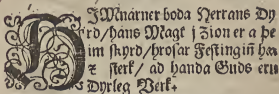 DJMnárner boda Herrans Dy
rd/hans Magt j Zion er a þe
im styrd/hrosar Festingiñ ha
z sterk/ ad handa Guds eru
Dyrleg Verk.